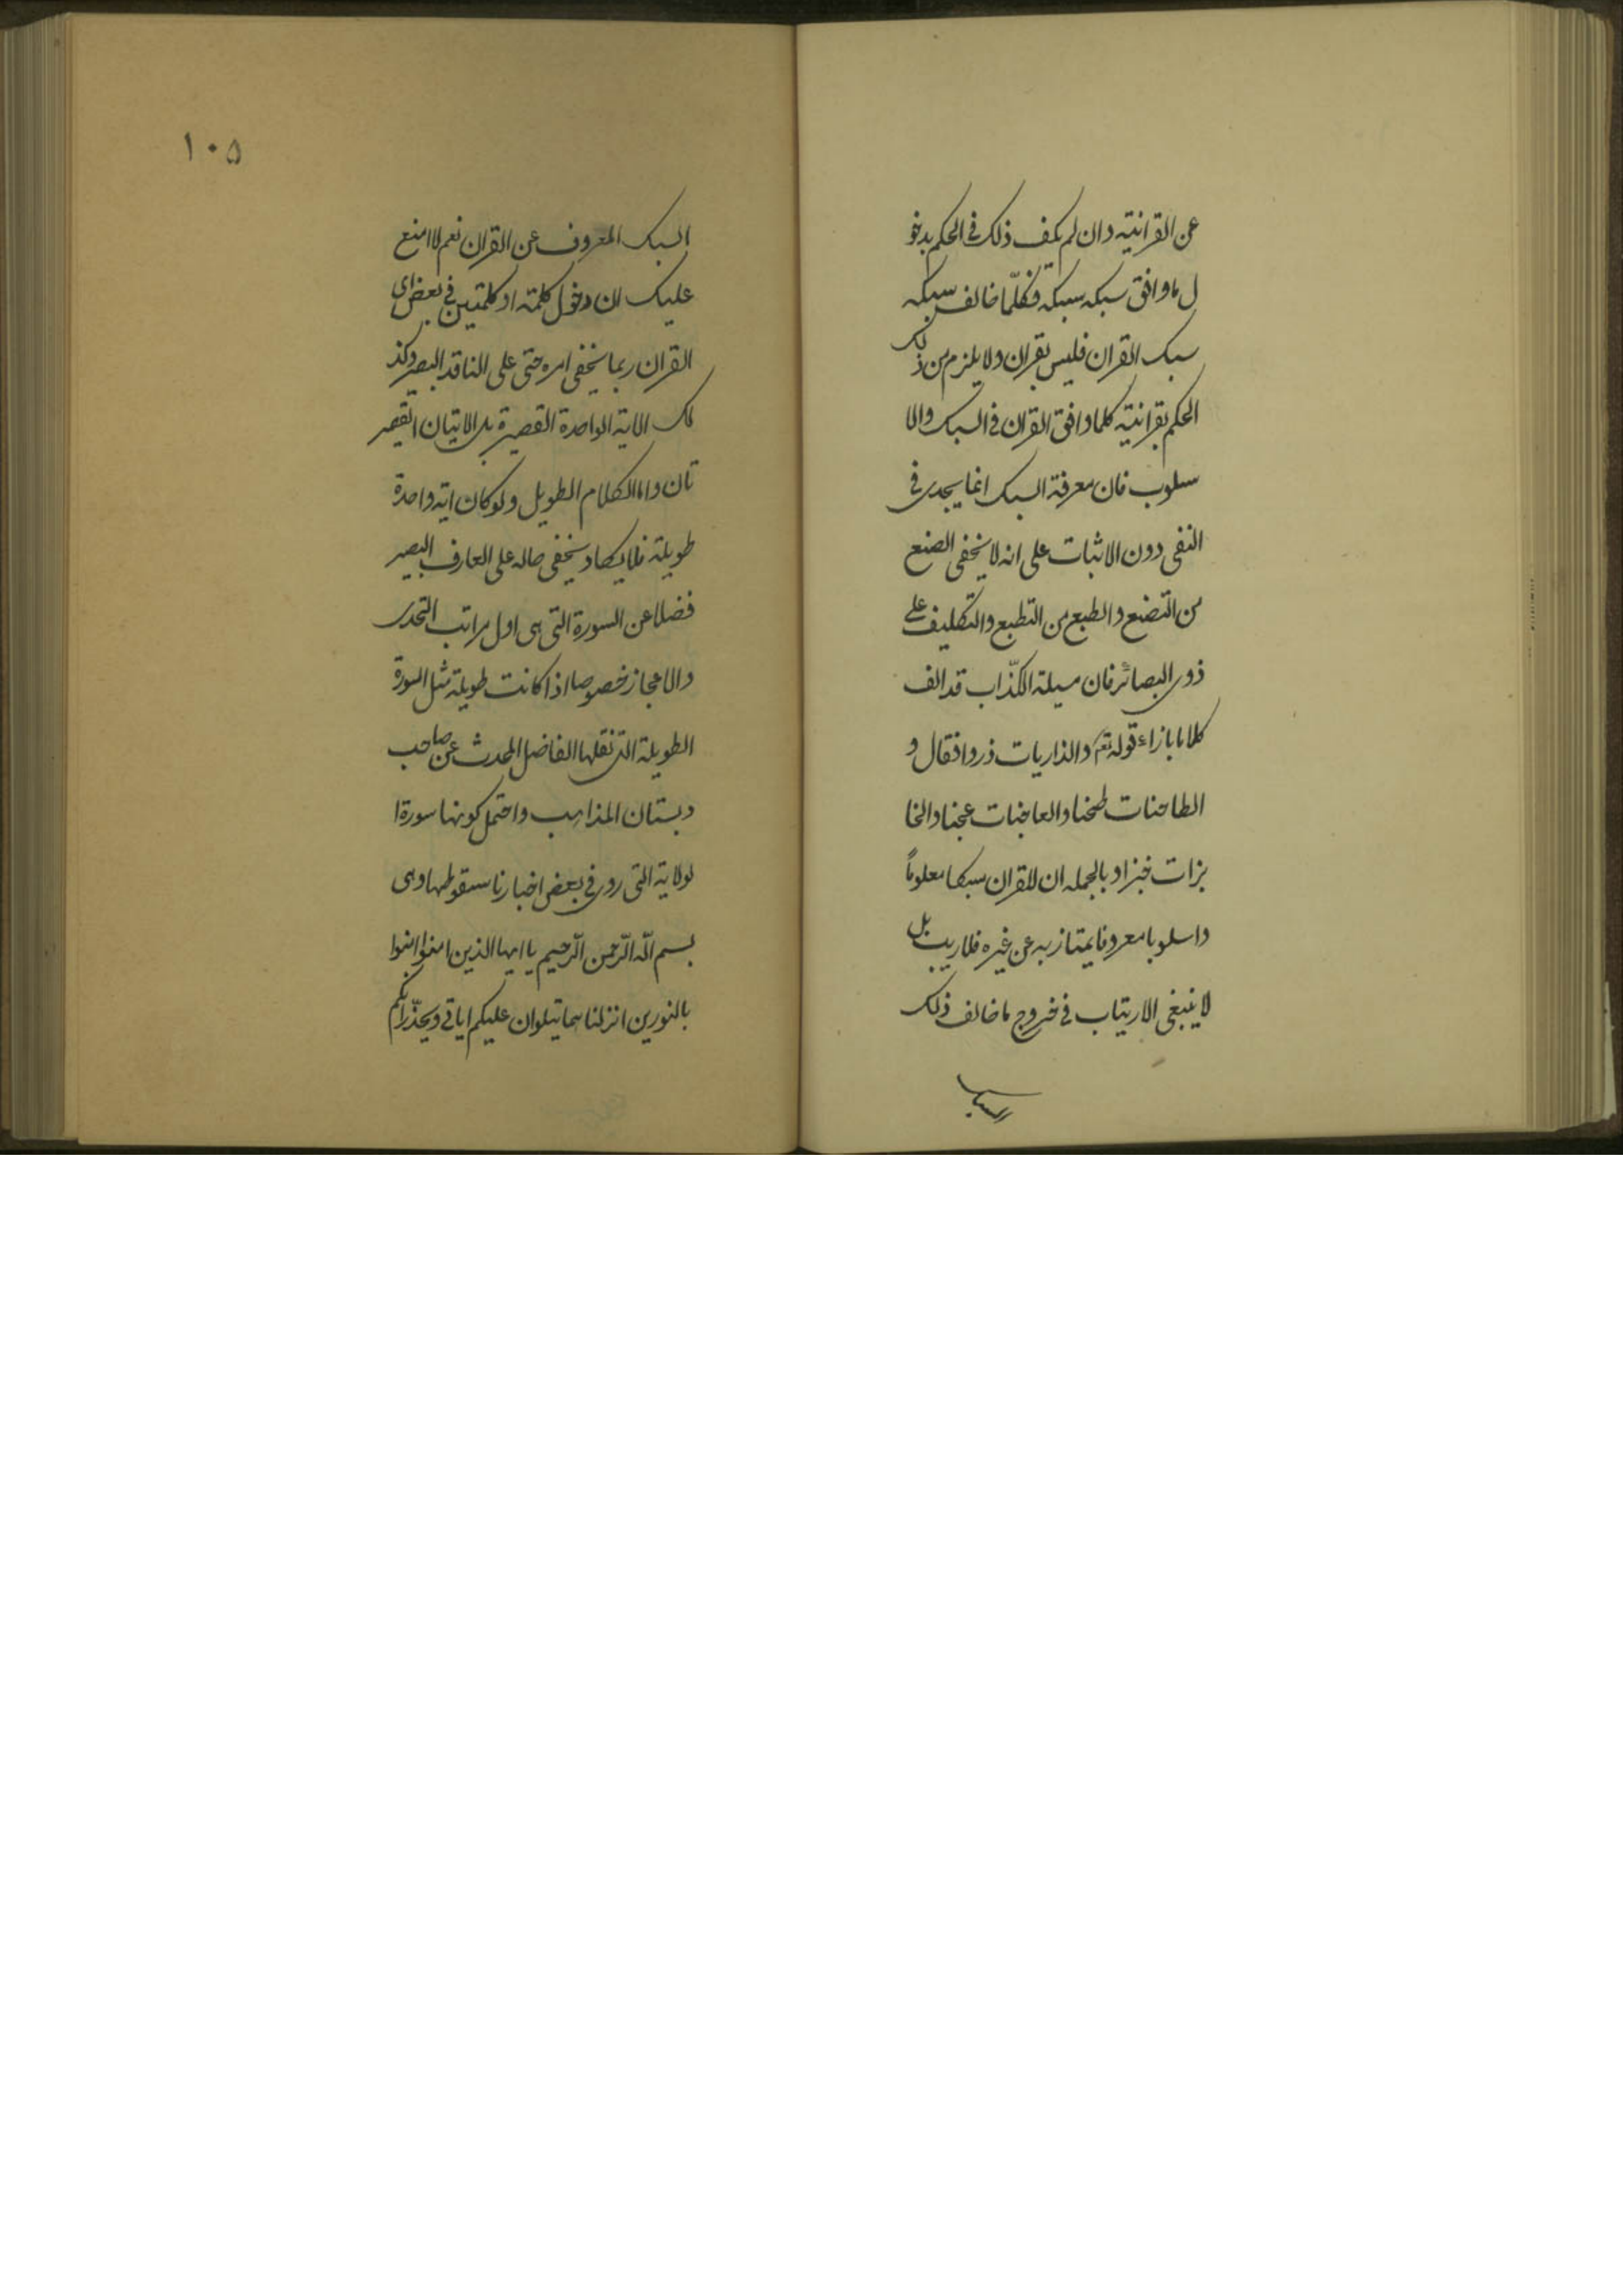 عن القرانیته و ان لم یکف ذلک فی الحکم بدخو
ل ما وافق سبکه سبکه فکلّما خالف سبکه
سبک القران فلیس بقران ولا یلزم من ذلک
الحکم بقرانیته کلما وافق القران فی السبک والا
سلوب فان معرفة السبک انما یجدی فی
النفی دون الاثبات علی انه لا یخفی الصنع
من التصنع والطبع من التطبع والتکلیف علی
ذوی البصائر فان مسیلة الکذّاب قد الف
کلاما بازاء قوله تعم والذاریات ذروا فقال و
الطاحنات طحنا والعاجنات عجنا والخا
بزات خبزا و بالجمله ان للقران سبکا معلوماً
واسلوبا معروفا یمتاز به عن غیره فلا ریب بل
لا ینبغی الارتیاب فی خروج ما خالف ذلک
السبک
۱۰۵
السبک المعروف عن القران نعم لا امنع
علیک ان دخول کلمته او کلمتین فی بعض ای
القران ربما یخفی امره حتی علی الناقد البصیر وکذ
لک الایة الواحدة القصیرة بل الایتان القصیر
تان واما الکلام الطویل ولو کان ایة واحدة
طویلة فلا یکاد یخفی حاله علی العارف البصیر
فضلا عن السورة التی هی اول مراتب التحدی
والاعجاز خصوصا اذا کانت طویلة مثل السورة
الطویلة التی نقلها الفاضل المحدث عن صاحب
دبستان المذاهب واحتمل کونها سورة ا
لولایة التی روی فی بعض اخبارنا سقوطها وهی
بسم الله الرّحمن الرّحیم یا ایها الذین امنوا امنوا
بالنورین انزلناهما یتلوان علیکم ایاتی ویحذّرانکم